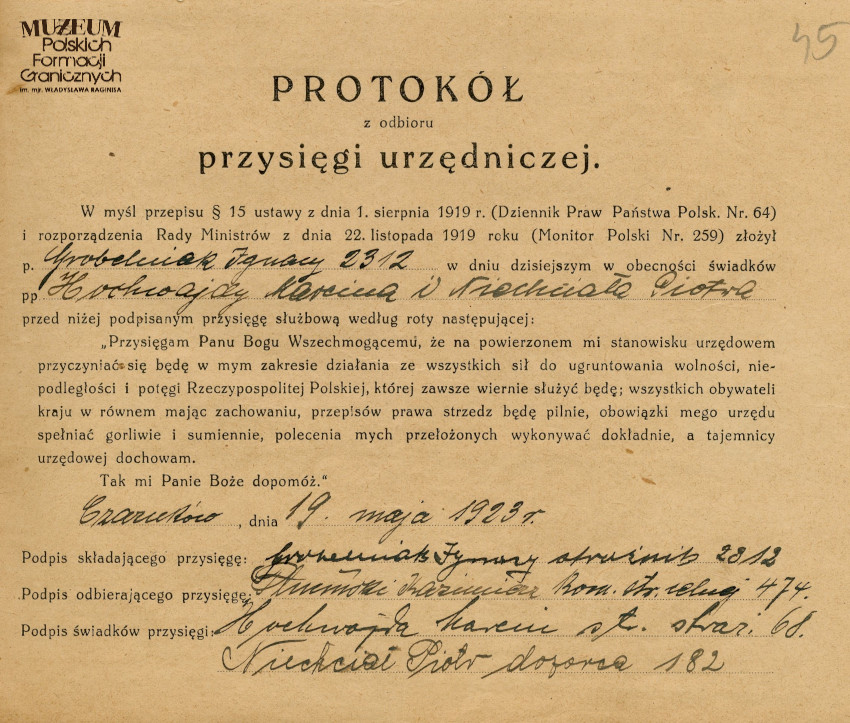 MUZEUM
Polskich
Formacji
Granicznych
im. mjr. WŁADYSŁAWA RAGINISA
45
PROTOKÓŁ
z odbioru
przysięgi urzędniczej.
W myśl przepisu § 15 ustawy z dnia 1. sierpnia 1919 r. (Dziennik Praw Państwa Polsk. Nr. 64)
i rozporządzenia Rady Ministrów z dnia 22. listopada 1919 roku (Monitor Polski Nr. 259) złożył
p. Grobelniak Ignacy 2312 w dniu dzisiejszym w obecności świadków
pp Hochwajdy Marcina i Niechciała Piotra
przed niżej podpisanym przysięgę służbową według roty następującej:
„Przysięgam Panu Bogu Wszechmogącemu, że na powierzonem mi stanowisku urzędowem
przyczyniać się będę w mym zakresie działania ze wszystkich sił do ugruntowania wolności, nie-
podległości i potęgi Rzeczypospolitej Polskiej, której zawsze wiernie służyć będę; wszystkich obywateli
kraju w równem mając zachowaniu, przepisów prawa strzedz będę pilnie, obowiązki mego urzędu
spełniać gorliwie i sumiennie, polecenia mych przełożonych wykonywać dokładnie, a tajemnicy
urzędowej dochowam.
Tak mi Panie Boże dopomóż.“
Czarnków, dnia 19. maja 1923 r.
Podpis składającego przysięgę: Grobelniak Ignacy strażnik 2312
Podpis odbierającego przysięgę: Kazimierz kom. 474.
Podpis świadków przysięgi: Hochwajda Marcin st. straż. 68.
Niechciał Piotr dozorca 182